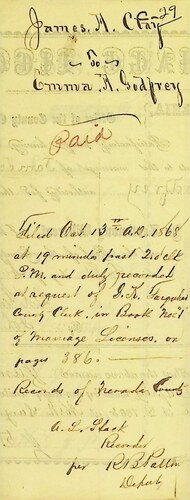 James. A. Clay 29
to
Emma. A. Godfrey
Paid
Filed Oct 13th A.D. 1868
at 19 minutes past 2 oclk
P.M. and duly recorded
at request of J. K.
County Clerk. in Book No 1
of Marriage Licenses, on
pages 386.
Records of Nevada County
Recorder
per R. B. Patton
Deputy